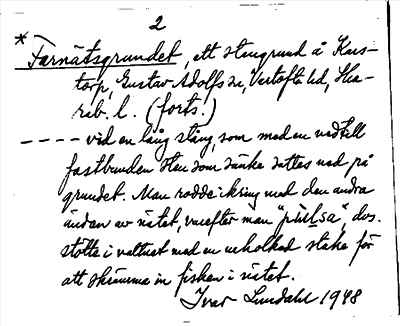 2
* Farnätsgrundet, ett stengrund å Kars-
torp, Gustav Adolfs sn, Vartofta hd, Ska-
rab. l. (forts.)
---- vid en lång stång, som med en vedtill
fastbunden sten som sänke sattes ned på
grundet. Man rodde ikring med den andra
ändan av nätet, varefter man "pulsa", dvs.
stötte i vattnet med en urholkad stake för
att skrämma in fisken i nätet.
Ivar Lundahl 1948